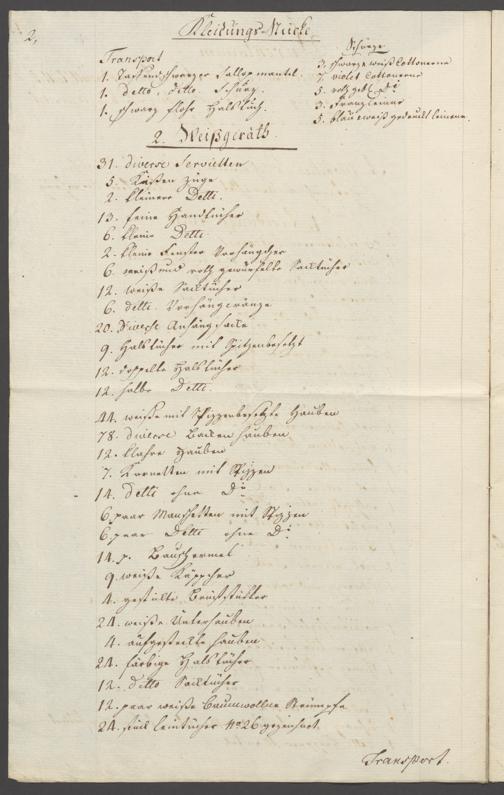 2,
Kleidungs-Stücke
Transport
1. Taffend schwarzer Fallop mantel.
1. detto, ditto Schurz.
1. schwarz flohr Halstuch.
Schürze
3. schwarze weiß Cottonerne
7. violet Cottonerne
5. roth geb. Do
3.
5. blau & weiß gedruckt leinene.
2. Weißgeräth.
31. diverse Servietten
5. Küßen züge
2. kleinere Detti.
13. feine Handtücher
6. kleine Detti
2. kleine Fenster Vorhänger
6. weiß und roth gewürfelte Sacktücher
12. weiße Sacktücher
6. detti Vorhängcränze
20. Diverse Anhängsäcke
9. Halstücher mit Spitzen besetzt
12. doppelte Halstücher
12. halbe Detti.
44. weiße mit Spizzen besetzte Hauben
78. diverse Backen hauben
12. klahre Hauben
7. Kornetten mit Spizzen
14. detti ohne Do
6 paar Manschetten mit Spizzen
6 paar Detti ohne Do
14. p. Bauschermel
9. weiße Käppcher
4. gefüllte Brüststücker
24. weiße Unterhauben
4. aufgesteckte hauben
24. färbige Halstücher
12. ditto Sacktücher
12. paar weiße baumwollene Strümpfe
24. stück leintücher No 26 gezeichnet.
Transport.